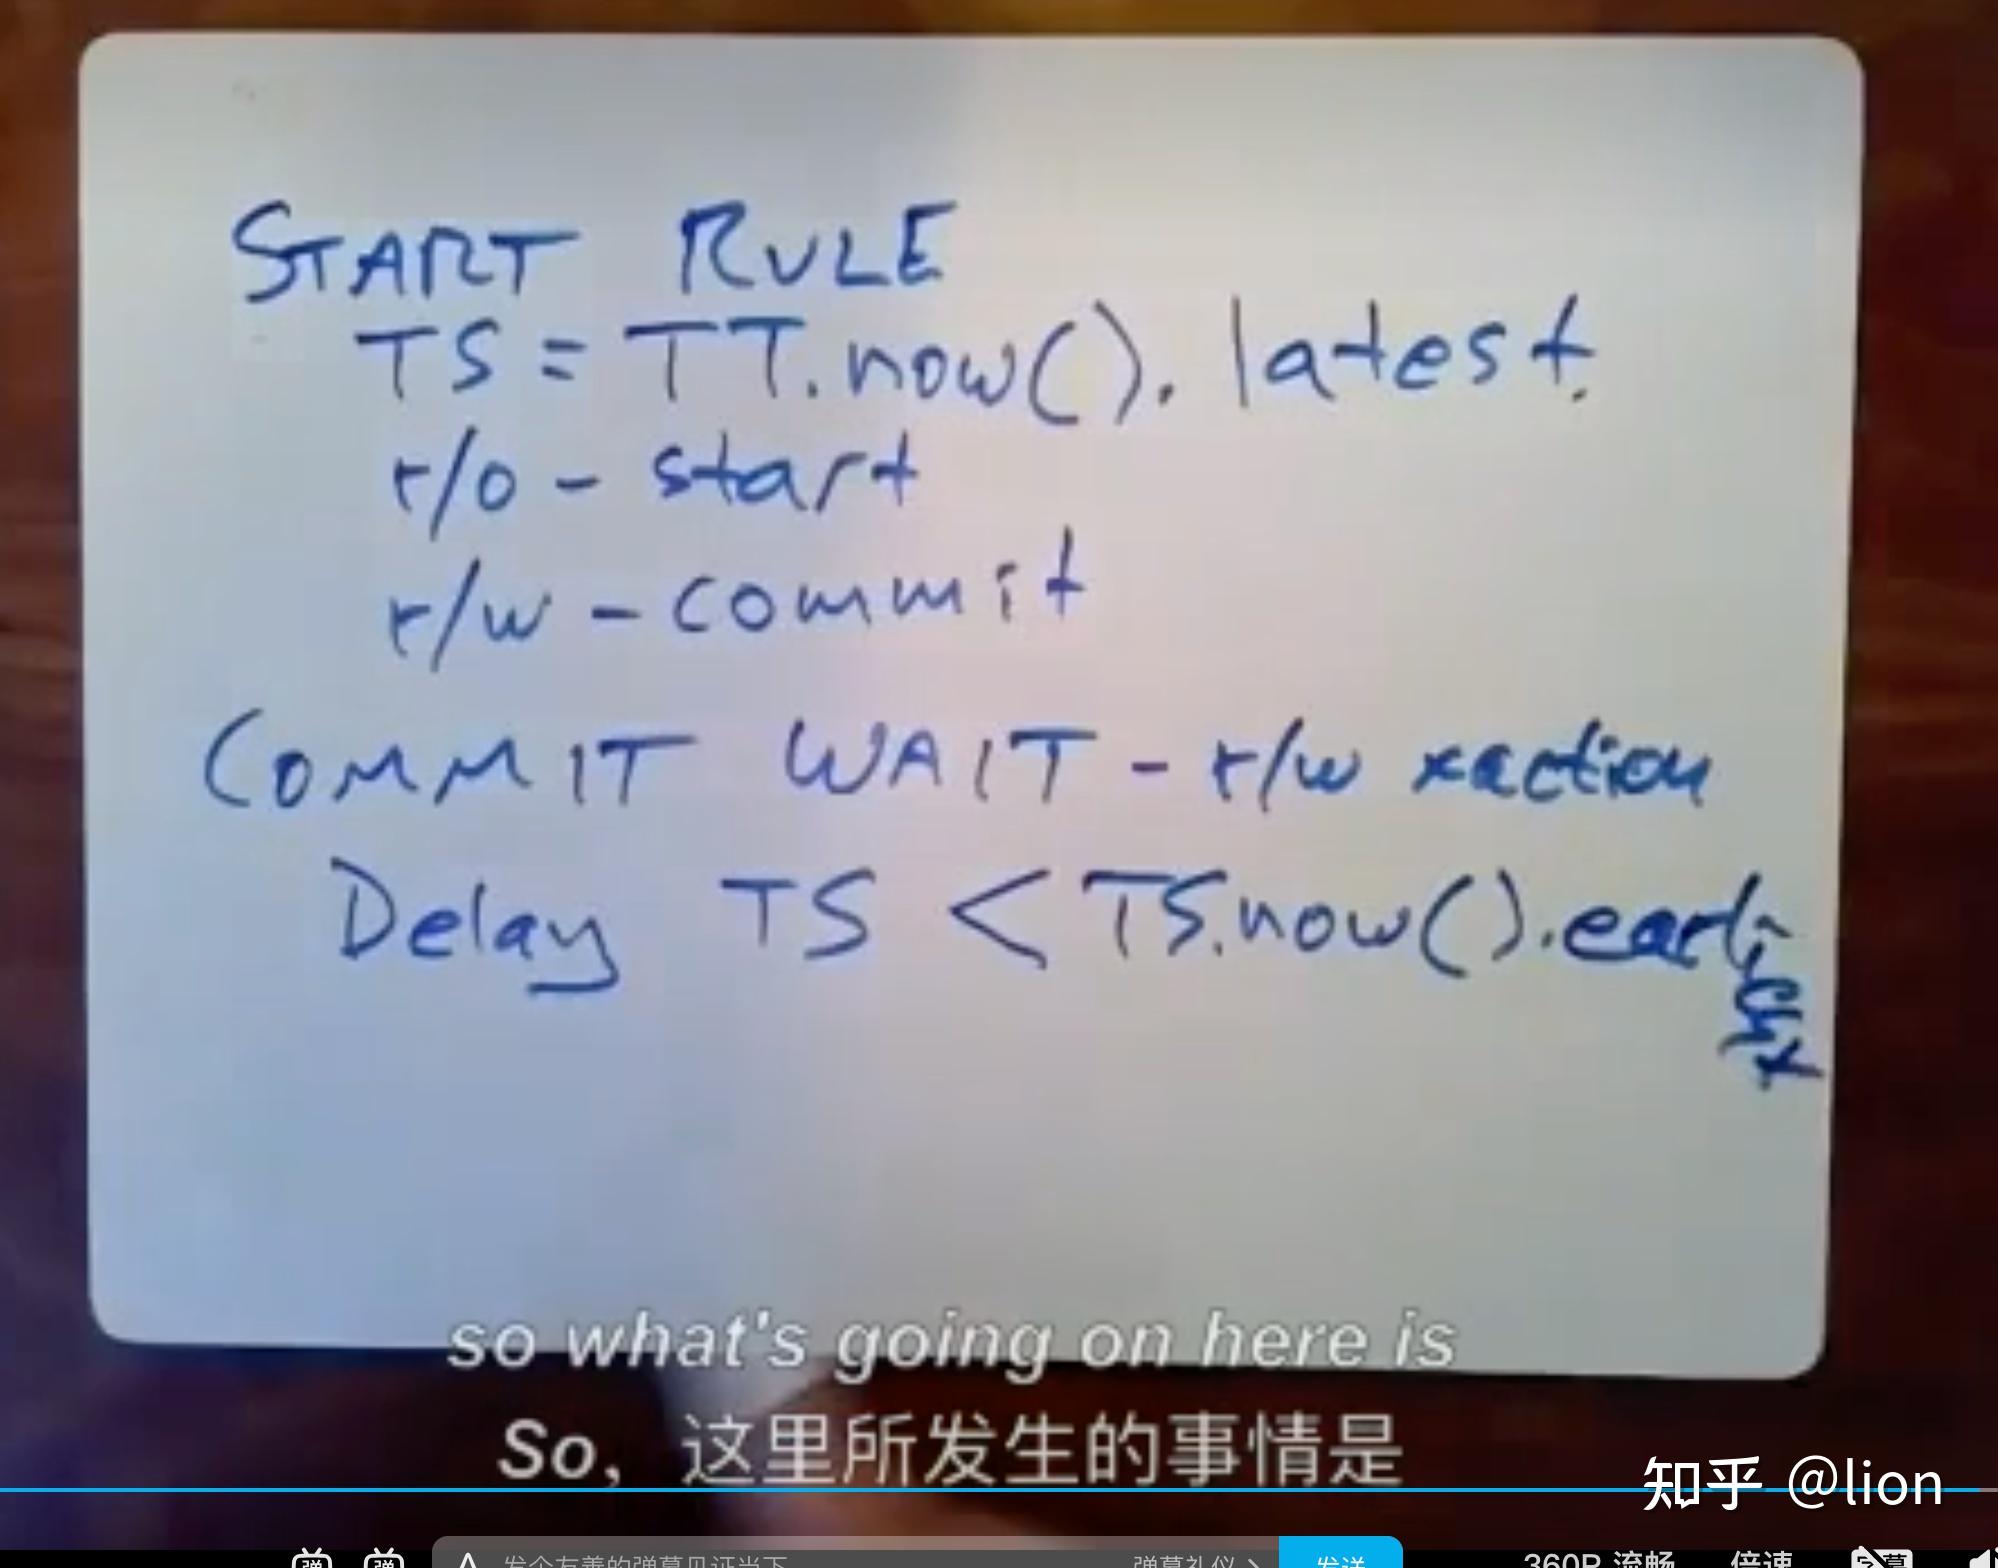 START RULE
TS = TT.now(). latest.
r/o - start
r/w - commit
COMMIT WAIT - r/w xaction
Delay TS < TS.now().earliest
so what's going on here is
So，这里所发生的事情是
知乎 @lion
弹 弹 A 发个友善的弹幕见证当下 弹幕礼仪 > 发送 360P 流畅 倍速 字幕